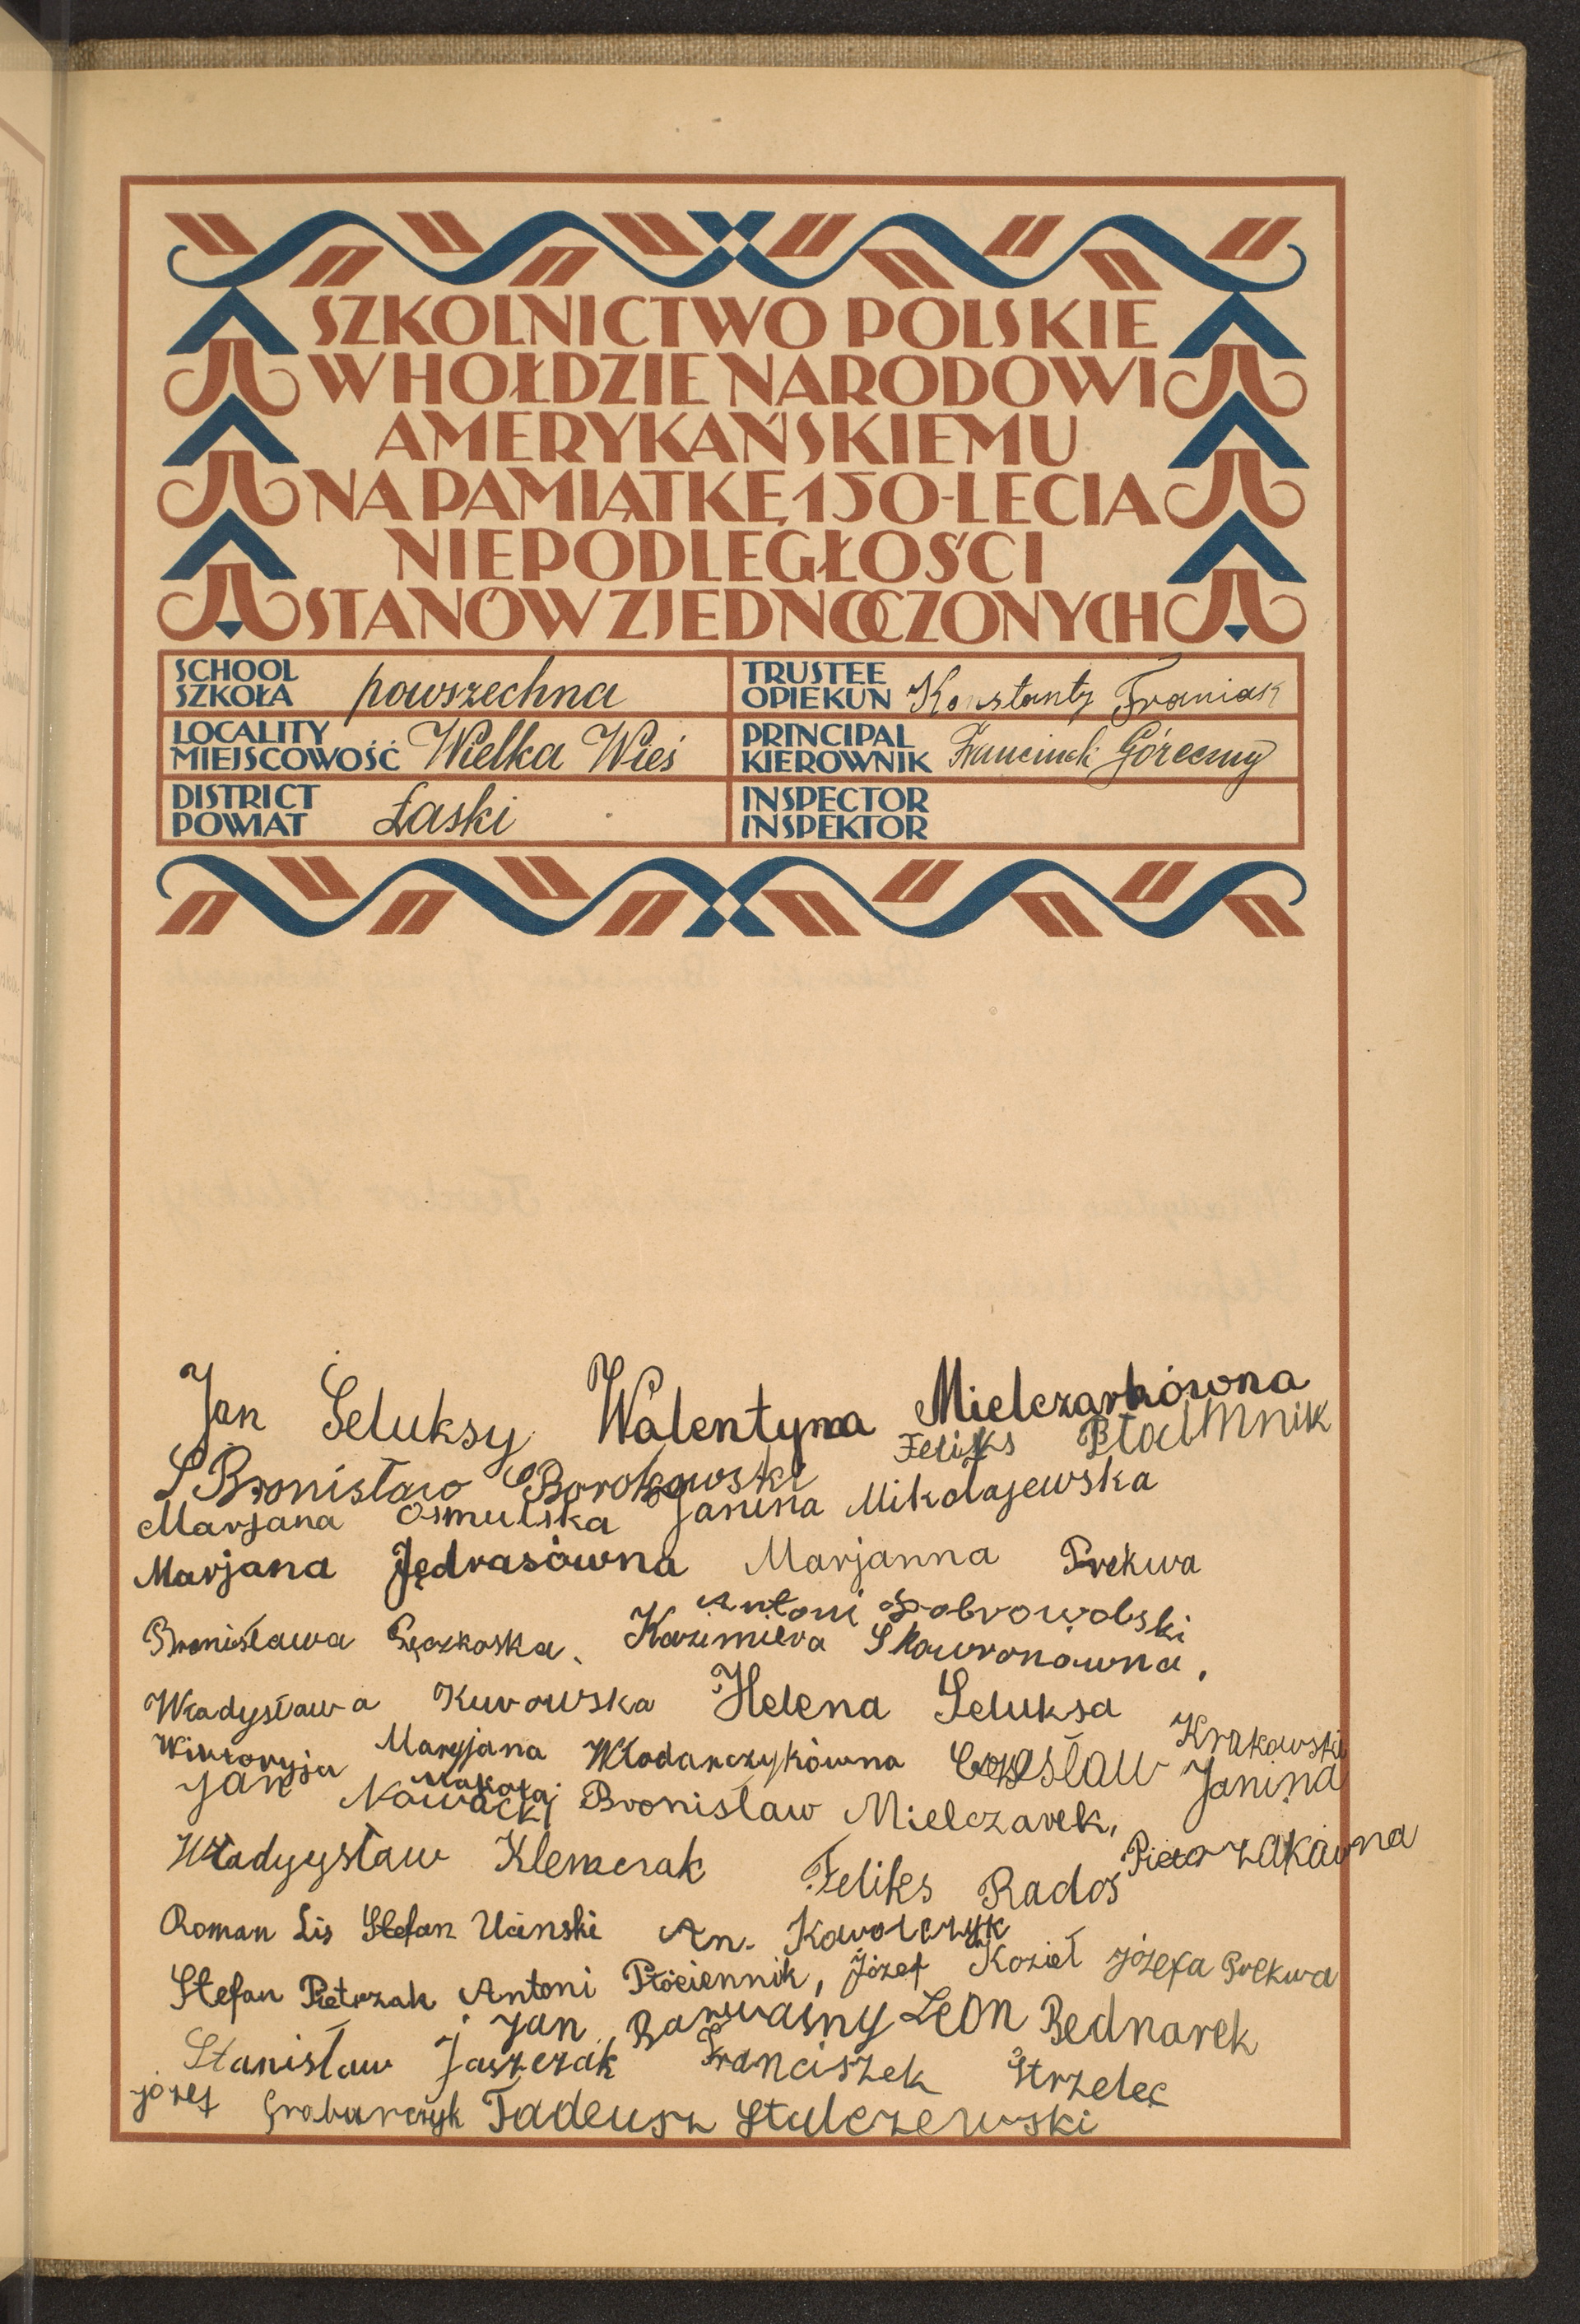 SZKOLNICTWO POLSKIE
W HOŁDZIE NARODOWI
AMERYKAŃSKIEMU
NA PAMIĄTKĘ 150-LECIA
NIEPODLEGŁOŚCI
STANÓW ZJEDNOCZONYCH
SCHOOL
SZKOŁA powszechna
TRUSTEE
OPIEKUN Konstanty Franiak
LOCALITY
MIEJSCOWOŚĆ Wielka Wieś
PRINCIPAL
KIEROWNIK Franciszek Góreczny
DISTRICT
POWIAT Łaski
INSPECTOR
INSPEKTOR
Jan Seluksy Walentyna Mielczarkówna
Bronisław Borokowski Feliks
Marjana Osmulska Janina Mikołajewska
Marjana Jędrasówna Marjanna Prekwa
Antoni Dobrowolski
Bronisława Kazimiera Skowronówna,
Władysława Kurowska Helena Seluksa
Wiktoryja Makoła Maryjana Włodarczykówna Czesław Krakowski
Jan Nowacki Bronisław Mielczarek, Janina
Pietrzakówna
Władyysław Klemczak Feliks Radoś
Roman Lis Stefan Uciński An. Kawolczyk
Stefan Pietrzak Antoni Płóciennik, Józef Kozieł józefa Prekwa
Jan Barwaśny LEON Bednarek
Stanisław Jaszczak Franciszek Strzelec
józef Grabarczyk Tadeusz Stulczewski